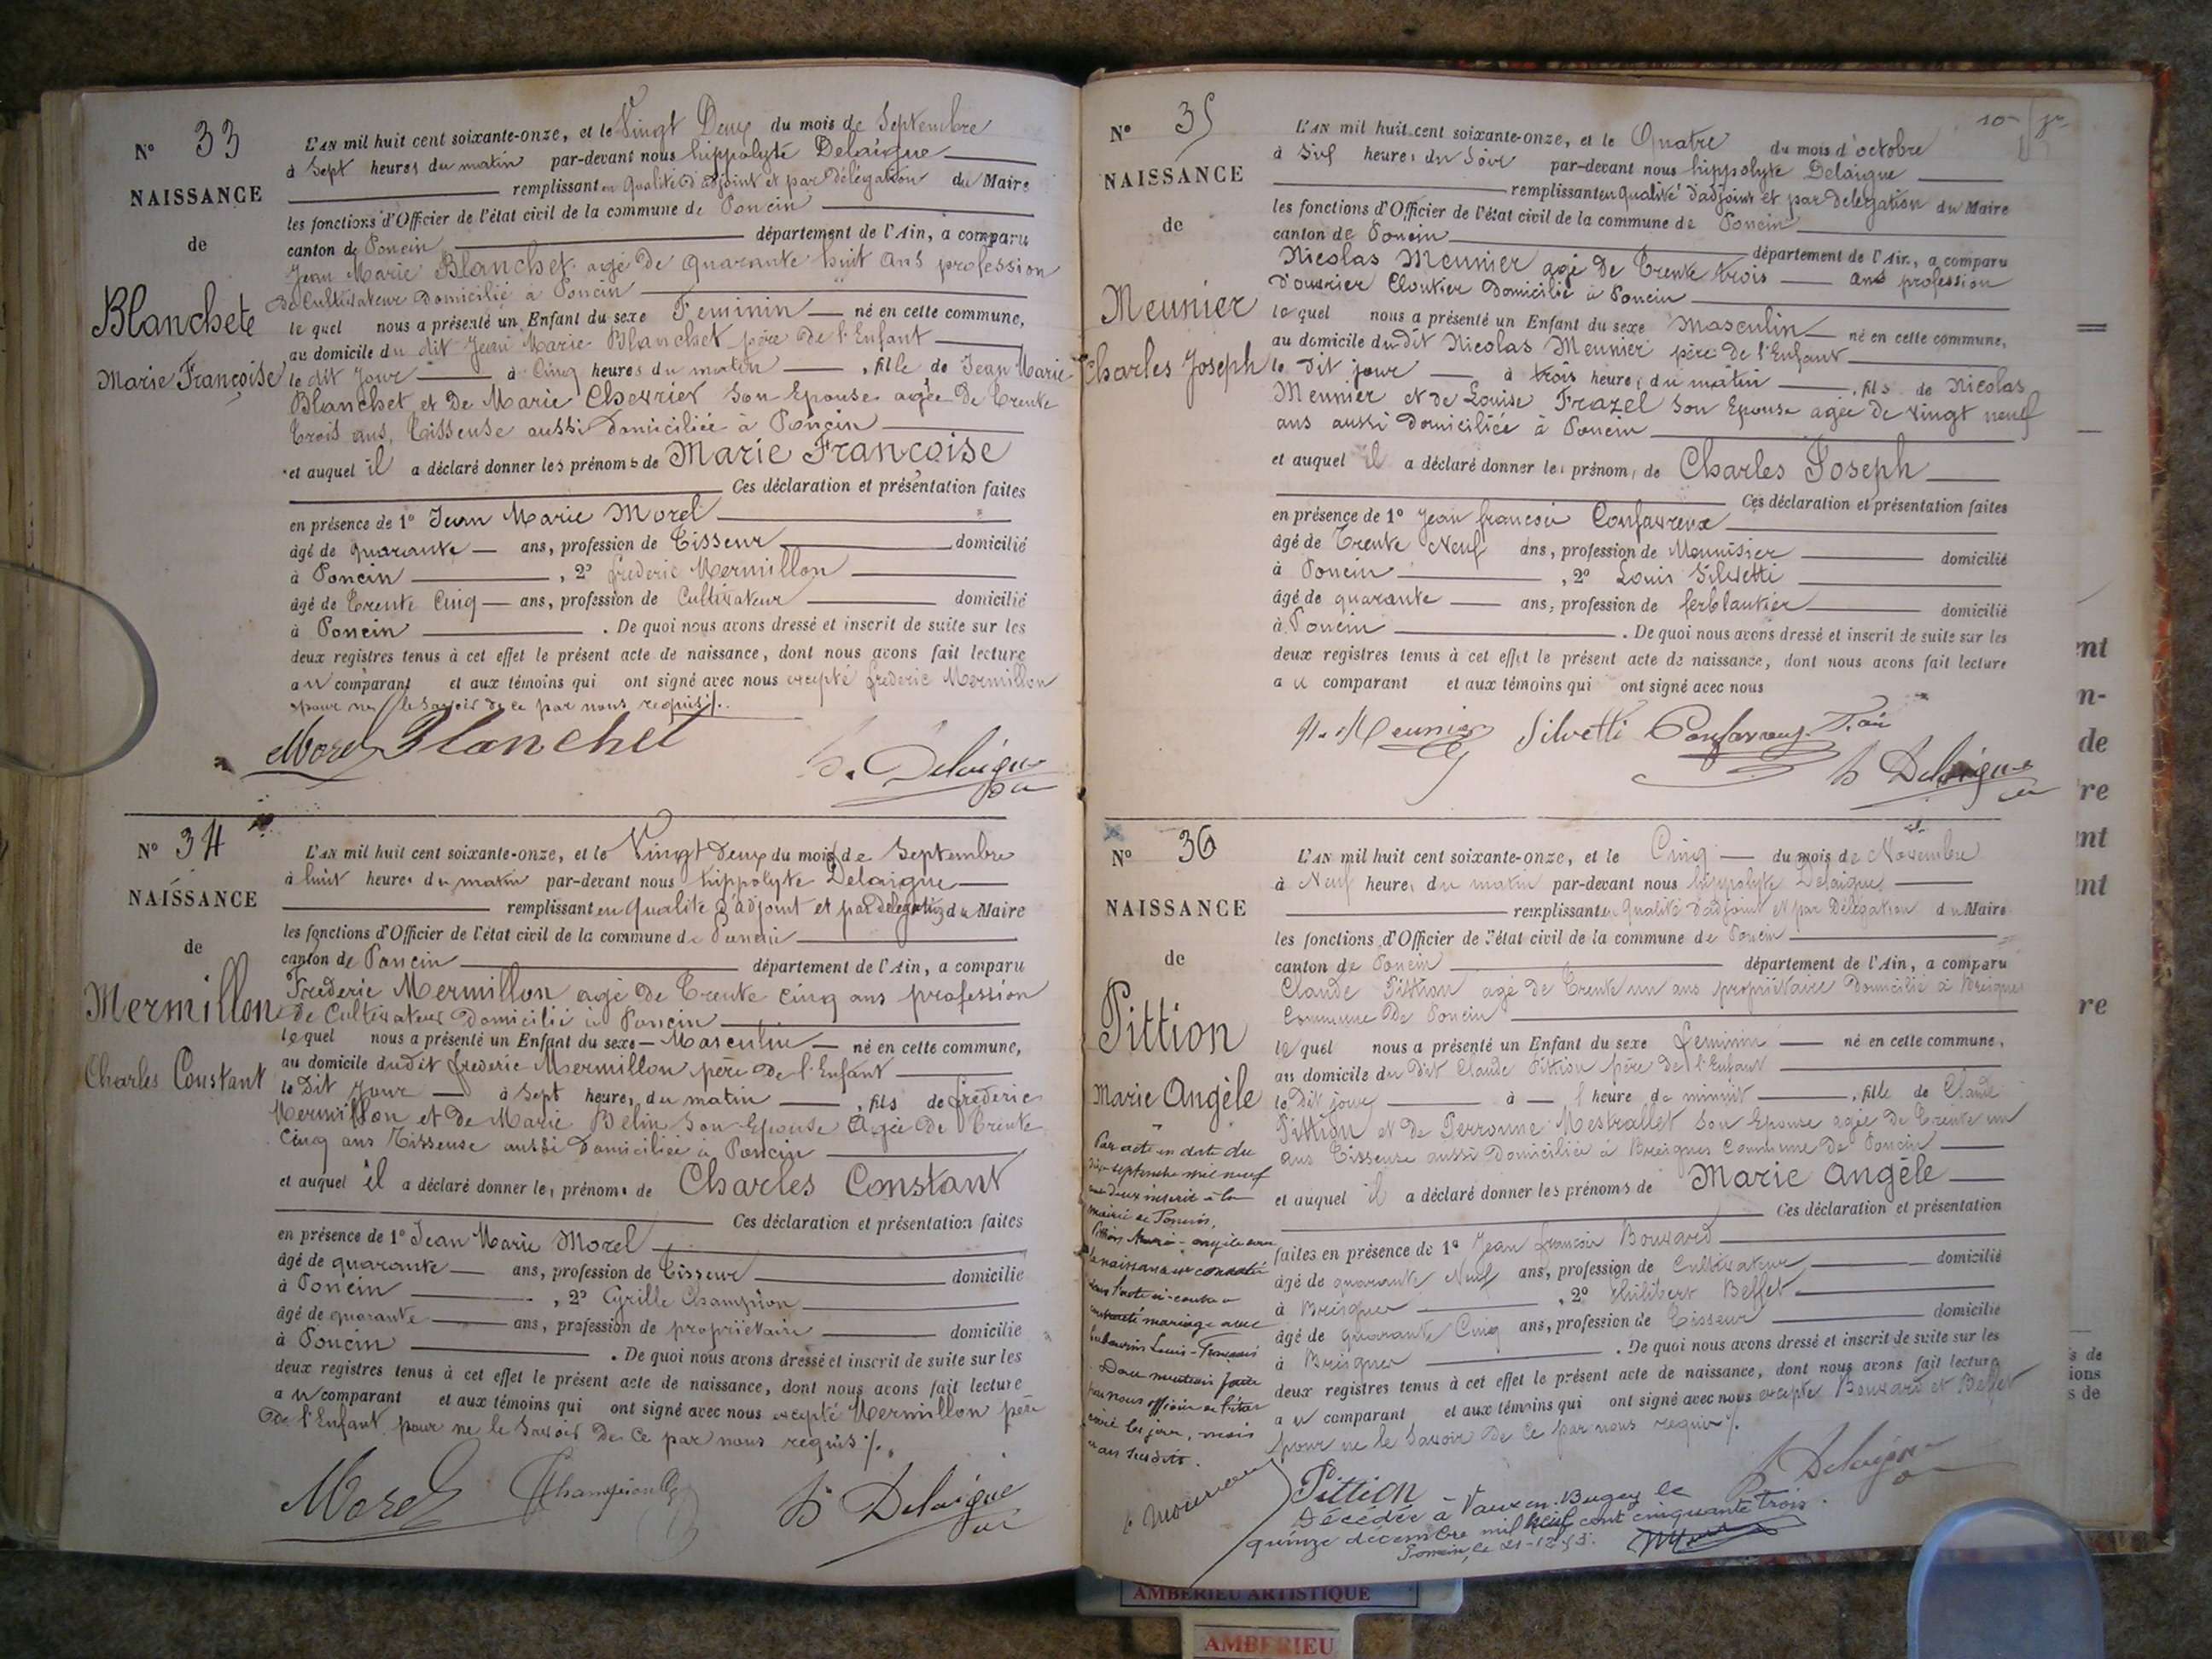 N° 33
NAISSANCE
de
Blanchete
Marie Françoise
L'AN mil huit cent soixante-onze, et le Vingt Deux du mois de Septembre
à Sept heures du matin par-devant nous hippolyte Delaigue
remplissant en qualité d'adjoint et par délégation du Maire
les fonctions d'Officier de l'état civil de la commune de Poncin
canton de Poncin département de l'Ain, a comparu
Jean Marie Blanchet agé de quarante huit ans profession
de Cultivateur domicilié à Poncin
le quel nous a présenté un Enfant du sexe Feminin né en cette commune,
au domicile du dit Jean Marie Blanchet père de l'Enfant
le dit jour à Cinq heures du matin, fille de Jean Marie
Blanchet et De Marie Chevrier Son Epouse agée De Trente
Trois ans, Tisseuse aussi Domiciliée à Poncin
et auquel il a déclaré donner les prénoms de Marie Françoise
Ces déclaration et présentation faites
en présence de 1° Jean Marie Morel
âgé de quarante ans, profession de Tisseur domicilié
à Poncin, 2° frederic Mermillon
âgé de Trente Cinq ans, profession de Cultivateur domicilié
à Poncin. De quoi nous avons dressé et inscrit de suite sur les
deux registres tenus à cet effet le présent acte de naissance, dont nous avons fait lecture
au comparant et aux témoins qui ont signé avec nous excepté frederic Mermillon
pour ne le Savoir de ce par nous requis ./.
Morel Blanchet
h. Delaigue
N° 34
NAISSANCE
de
Mermillon
Charles Constant
L'AN mil huit cent soixante-onze, et le Vingt deux du mois de Septembre
à huit heures du matin par-devant nous hippolyte Delaigue
remplissant en qualité d'adjoint et par délégation du Maire
les fonctions d'Officier de l'état civil de la commune de Poncin
canton de Poncin département de l'Ain, a comparu
Frederic Mermillon agé de Trente Cinq ans profession
de Cultivateur Domicilié à Poncin
le quel nous a présenté un Enfant du sexe Masculin né en cette commune,
au domicile du dit frederic Mermillon père de l'Enfant
le Dit Jour à Sept heures du matin, fils de frederic
Mermillon et de Marie Belin Son Epouse Agée De Trente
Cinq ans Tisseuse aussi Domiciliée à Poncin
et auquel il a déclaré donner les prénoms de Charles Constant
Ces déclaration et présentation faites
en présence de 1° Jean Marie Morel
âgé de quarante ans, profession de Tisseur domicilié
à Poncin, 2° Cyrille Champion
âgé de quarante ans, profession de propriétaire domicilié
à Poncin. De quoi nous avons dressé et inscrit de suite sur les
deux registres tenus à cet effet le présent acte de naissance, dont nous avons fait lecture
au comparant et aux témoins qui ont signé avec nous excepté Mermillon père
De l'Enfant pour ne le Savoir De Ce par nous requis ./.
Morel Champion
h Delaigue
N° 35
NAISSANCE
de
Meunier
Charles Joseph
L'AN mil huit cent soixante-onze, et le Quatre du mois d'octobre
à Six heures du Soir par-devant nous hippolyte Delaigue
remplissant en qualité d'adjoint et par délégation du Maire
les fonctions d'Officier de l'état civil de la commune de Poncin
canton de Poncin département de l'Ain, a comparu
Nicolas Meunier agé de Trente trois ans profession
D'ouvrier Cloutier Domicilié à Poncin
le quel nous a présenté un Enfant du sexe Masculin né en cette commune,
au domicile du Dit Nicolas Meunier père de l'Enfant
le Dit jour à trois heures du matin, fils de Nicolas
Meunier et de Louise Frazel Son Epouse agée de vingt neuf
ans aussi Domiciliée à Poncin
et auquel il a déclaré donner les prénoms de Charles Joseph
Ces déclaration et présentation faites
en présence de 1° Jean françois Confavreux
âgé de Trente Neuf ans, profession de Menuisier domicilié
à Poncin, 2° Louis Silvetti
âgé de quarante ans, profession de ferblantier domicilié
à Poncin. De quoi nous avons dressé et inscrit de suite sur les
deux registres tenus à cet effet le présent acte de naissance, dont nous avons fait lecture
au comparant et aux témoins qui ont signé avec nous
N. Meunier Silvetti Confavreux
h Delaigue
N° 36
NAISSANCE
de
Pittion
Marie Angèle
Par acte en date du
dix septembre mil neuf
cent deux inscrit à la
mairie de Poncin,
Pittion Marie-angèle dont
la naissance est constatée
dans l'acte ci-contre a
contracté mariage avec
Louis-François
Dont mention faite
par nous officier de l'état
civil les jour, mois
et an susdits.
L'AN mil huit cent soixante-onze, et le Cinq du mois de Novembre
à Neuf heures du matin par-devant nous hippolyte Delaigue
remplissant en qualité d'adjoint et par Délégation du Maire
les fonctions d'Officier de l'état civil de la commune de Poncin
canton de Poncin département de l'Ain, a comparu
Claude Pittion agé de Trente un ans propriétaire Domicilié à Breignes
Commune De Poncin
le quel nous a présenté un Enfant du sexe feminin né en cette commune,
au domicile du Dit Claude Pittion père De l'Enfant
le Dit jour à l'heure de minuit, fille de Claude
Pittion et de Perronne Mestrallet Son Epouse agée de Trente un
ans Tisseuse aussi Domiciliée à Breignes Commune De Poncin
et auquel il a déclaré donner les prénoms de Marie Angèle
Ces déclaration et présentation
faites en présence de 1° Jean françois Bouvard
âgé de quarante Neuf ans, profession de Cultivateur domicilié
à Breignes, 2° Philibert Beffet
âgé de quarante Cinq ans, profession de Tisseur domicilié
à Breignes. De quoi nous avons dressé et inscrit de suite sur les
deux registres tenus à cet effet le présent acte de naissance, dont nous avons fait lecture
au comparant et aux témoins qui ont signé avec nous excepté Bouvard et Beffet
pour ne le Savoir De Ce par nous requis ./.
Pittion h Delaigue
Décédée à Vaux en Bugey le
quinze décembre mil neuf cent cinquante trois.
Poncin, le 21-12-53.
AMBERIEU ARTISTIQUE
AMBERIEU